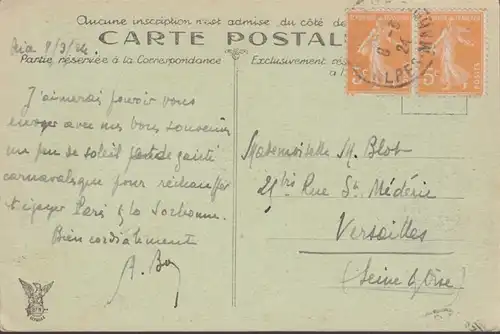 Aucune inscription n'est admise du côté de
CARTE POSTAL
Partie réservée à la Correspondance
Exclusivement rés
à l'
8/3/24
J'aimerais pouvoir vous
envoyer avec mes bons souvenirs
un peu de soleil et de gaité
carnavalesque pour réchauffer
et égayer Paris & la Sorbonne.
Bien cordialement
Mademoiselle M. Blot
25 bis Rue St Médéric
Versailles
(Seine & Oise)
5c
POSTES